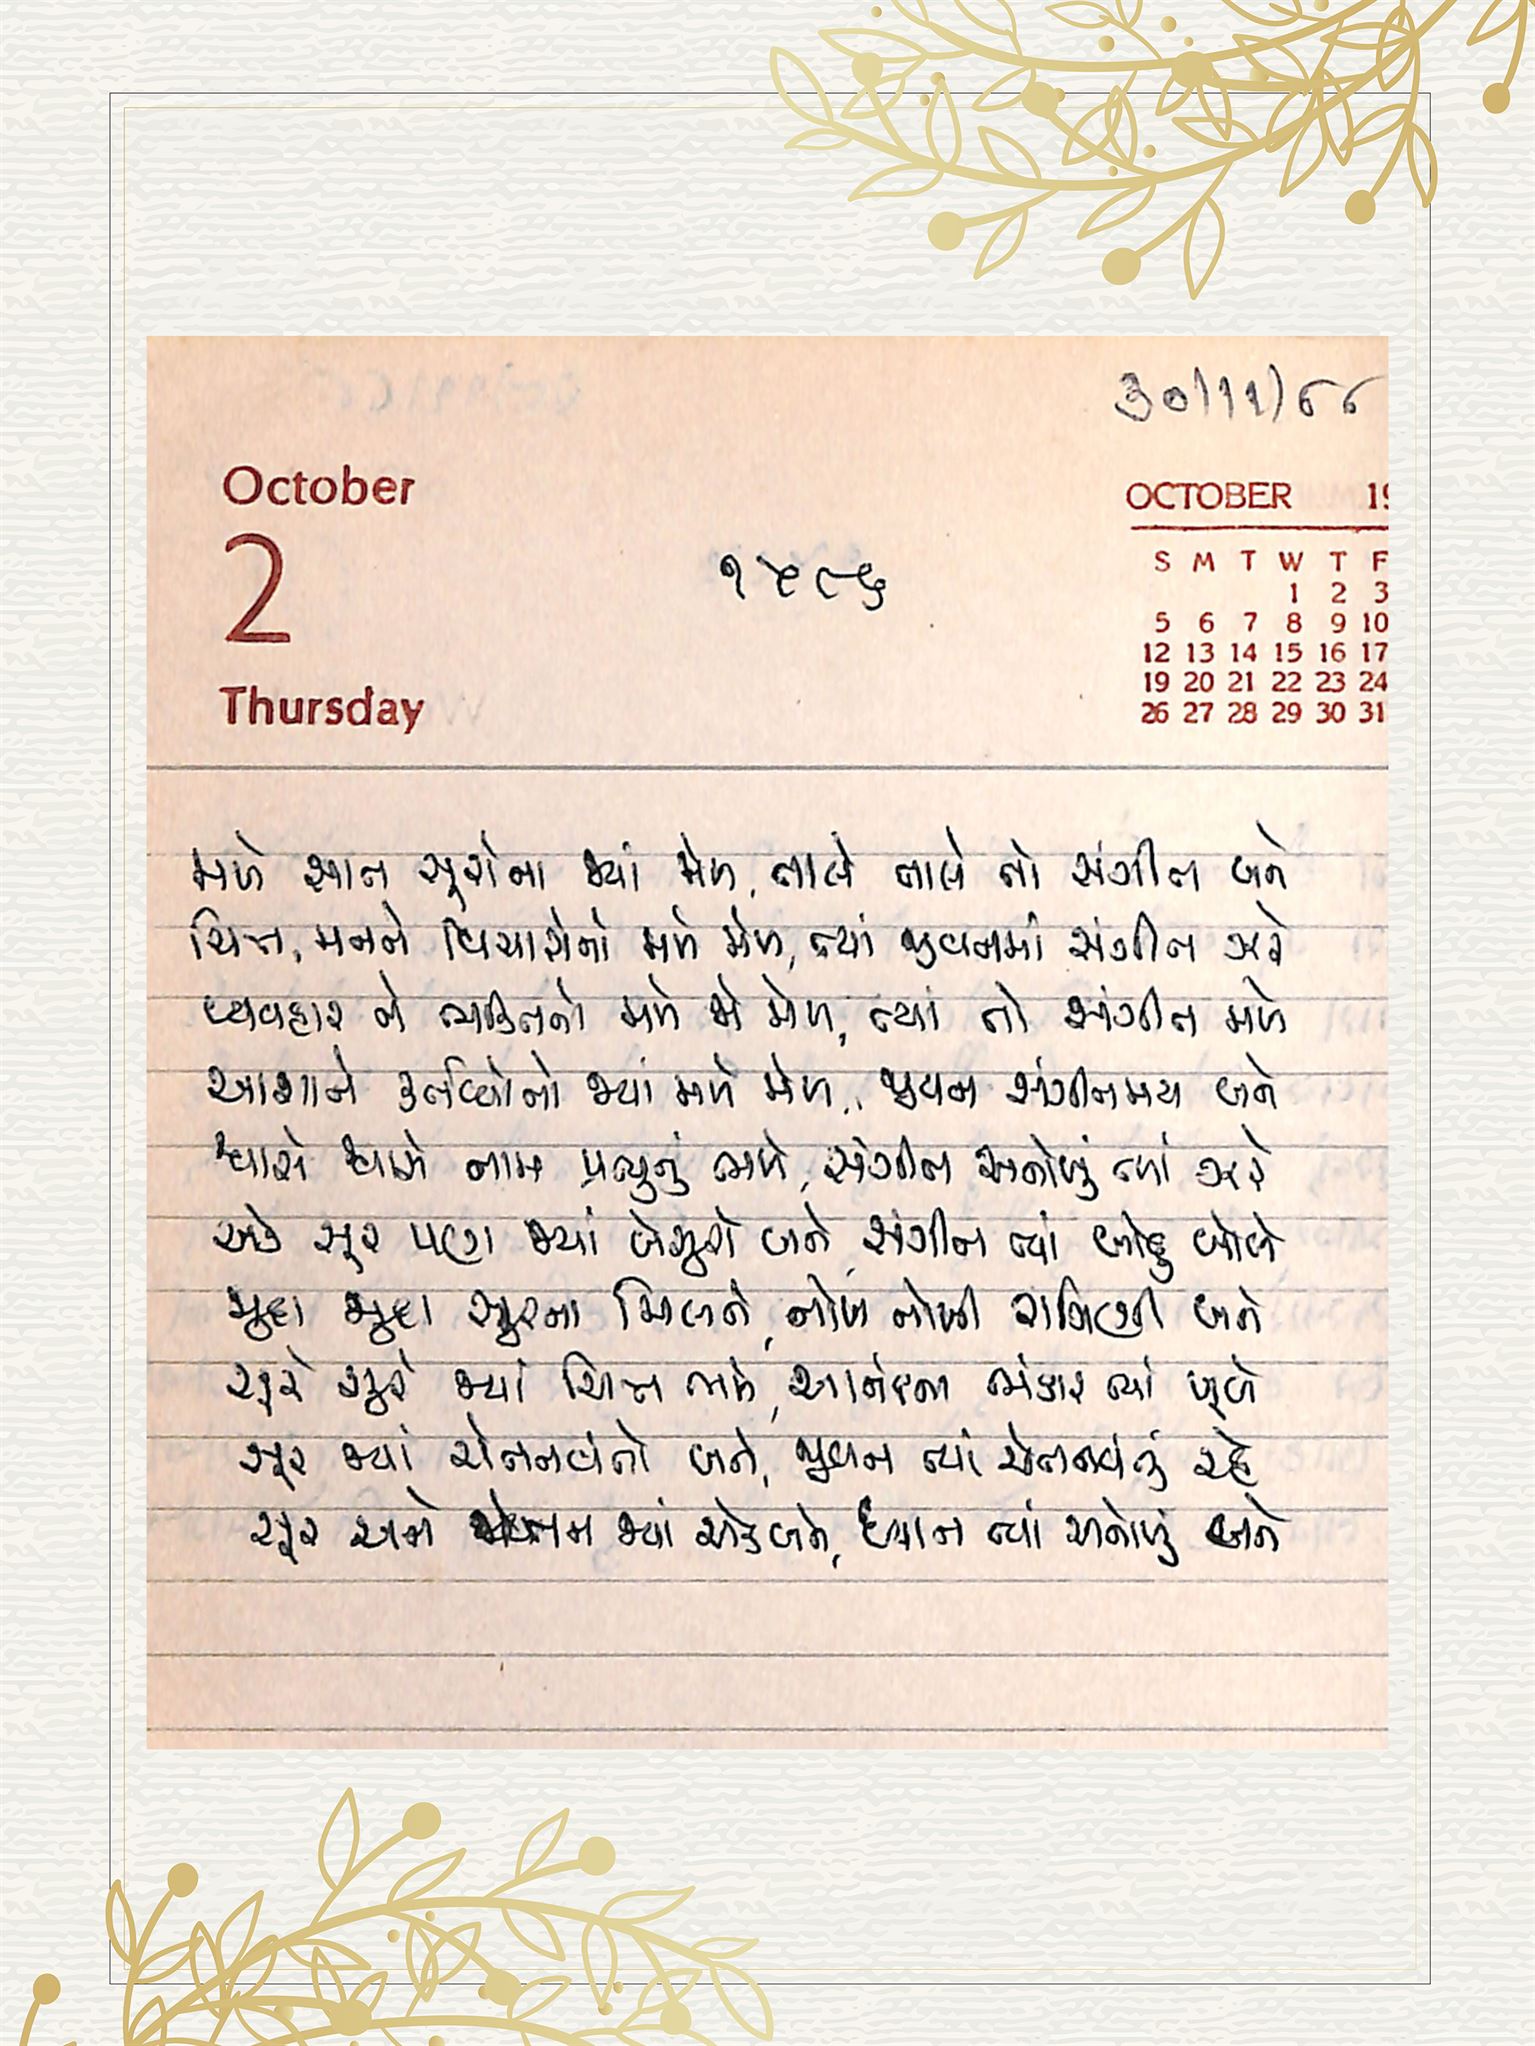 ૩૦/૧૧/૯૯
October
2
Thursday
૧૪૯૬
OCTOBER 19
S M T W T F
1 2 3
5 6 7 8 9 10
12 13 14 15 16 17
19 20 21 22 23 24
26 27 28 29 30 31
મળે સાત સૂરોના જ્યાં મેળ, તાલે તાલે તો સંગીત બને
ચિત્ત, મનને વિચારોનો મળે મેળ, ત્યાં જીવનમાં સંગીત ઝરે
વ્યવહાર ને ભક્તિનો મળે જો મેળ, ત્યાં તો સંગીત મળે
આશાને કર્તવ્યોનો જ્યાં મળે મેળ, જીવન સંગીતમય બને
શ્વાસે શ્વાસે નામ પ્રભુનું ભળે, સંગીત અનોખું ત્યાં ઝરે
એક સૂર પણ જ્યાં બેસુરો બને, સંગીત ત્યાં બોદું બોલે
જુદા જુદા સૂરના મિલને, નોખ નોખી રાગિણી બને
સૂરે સૂરે જ્યાં ચિત્ત ભળે, આનંદના ભંડાર ત્યાં ખૂલે
સૂર જ્યાં ચેતનવંતો બને, જીવન ત્યાં ચેતનવંતું રહે
સૂર અને જ્યાં એકબને, ધ્યાન ત્યાં અનોખું બને